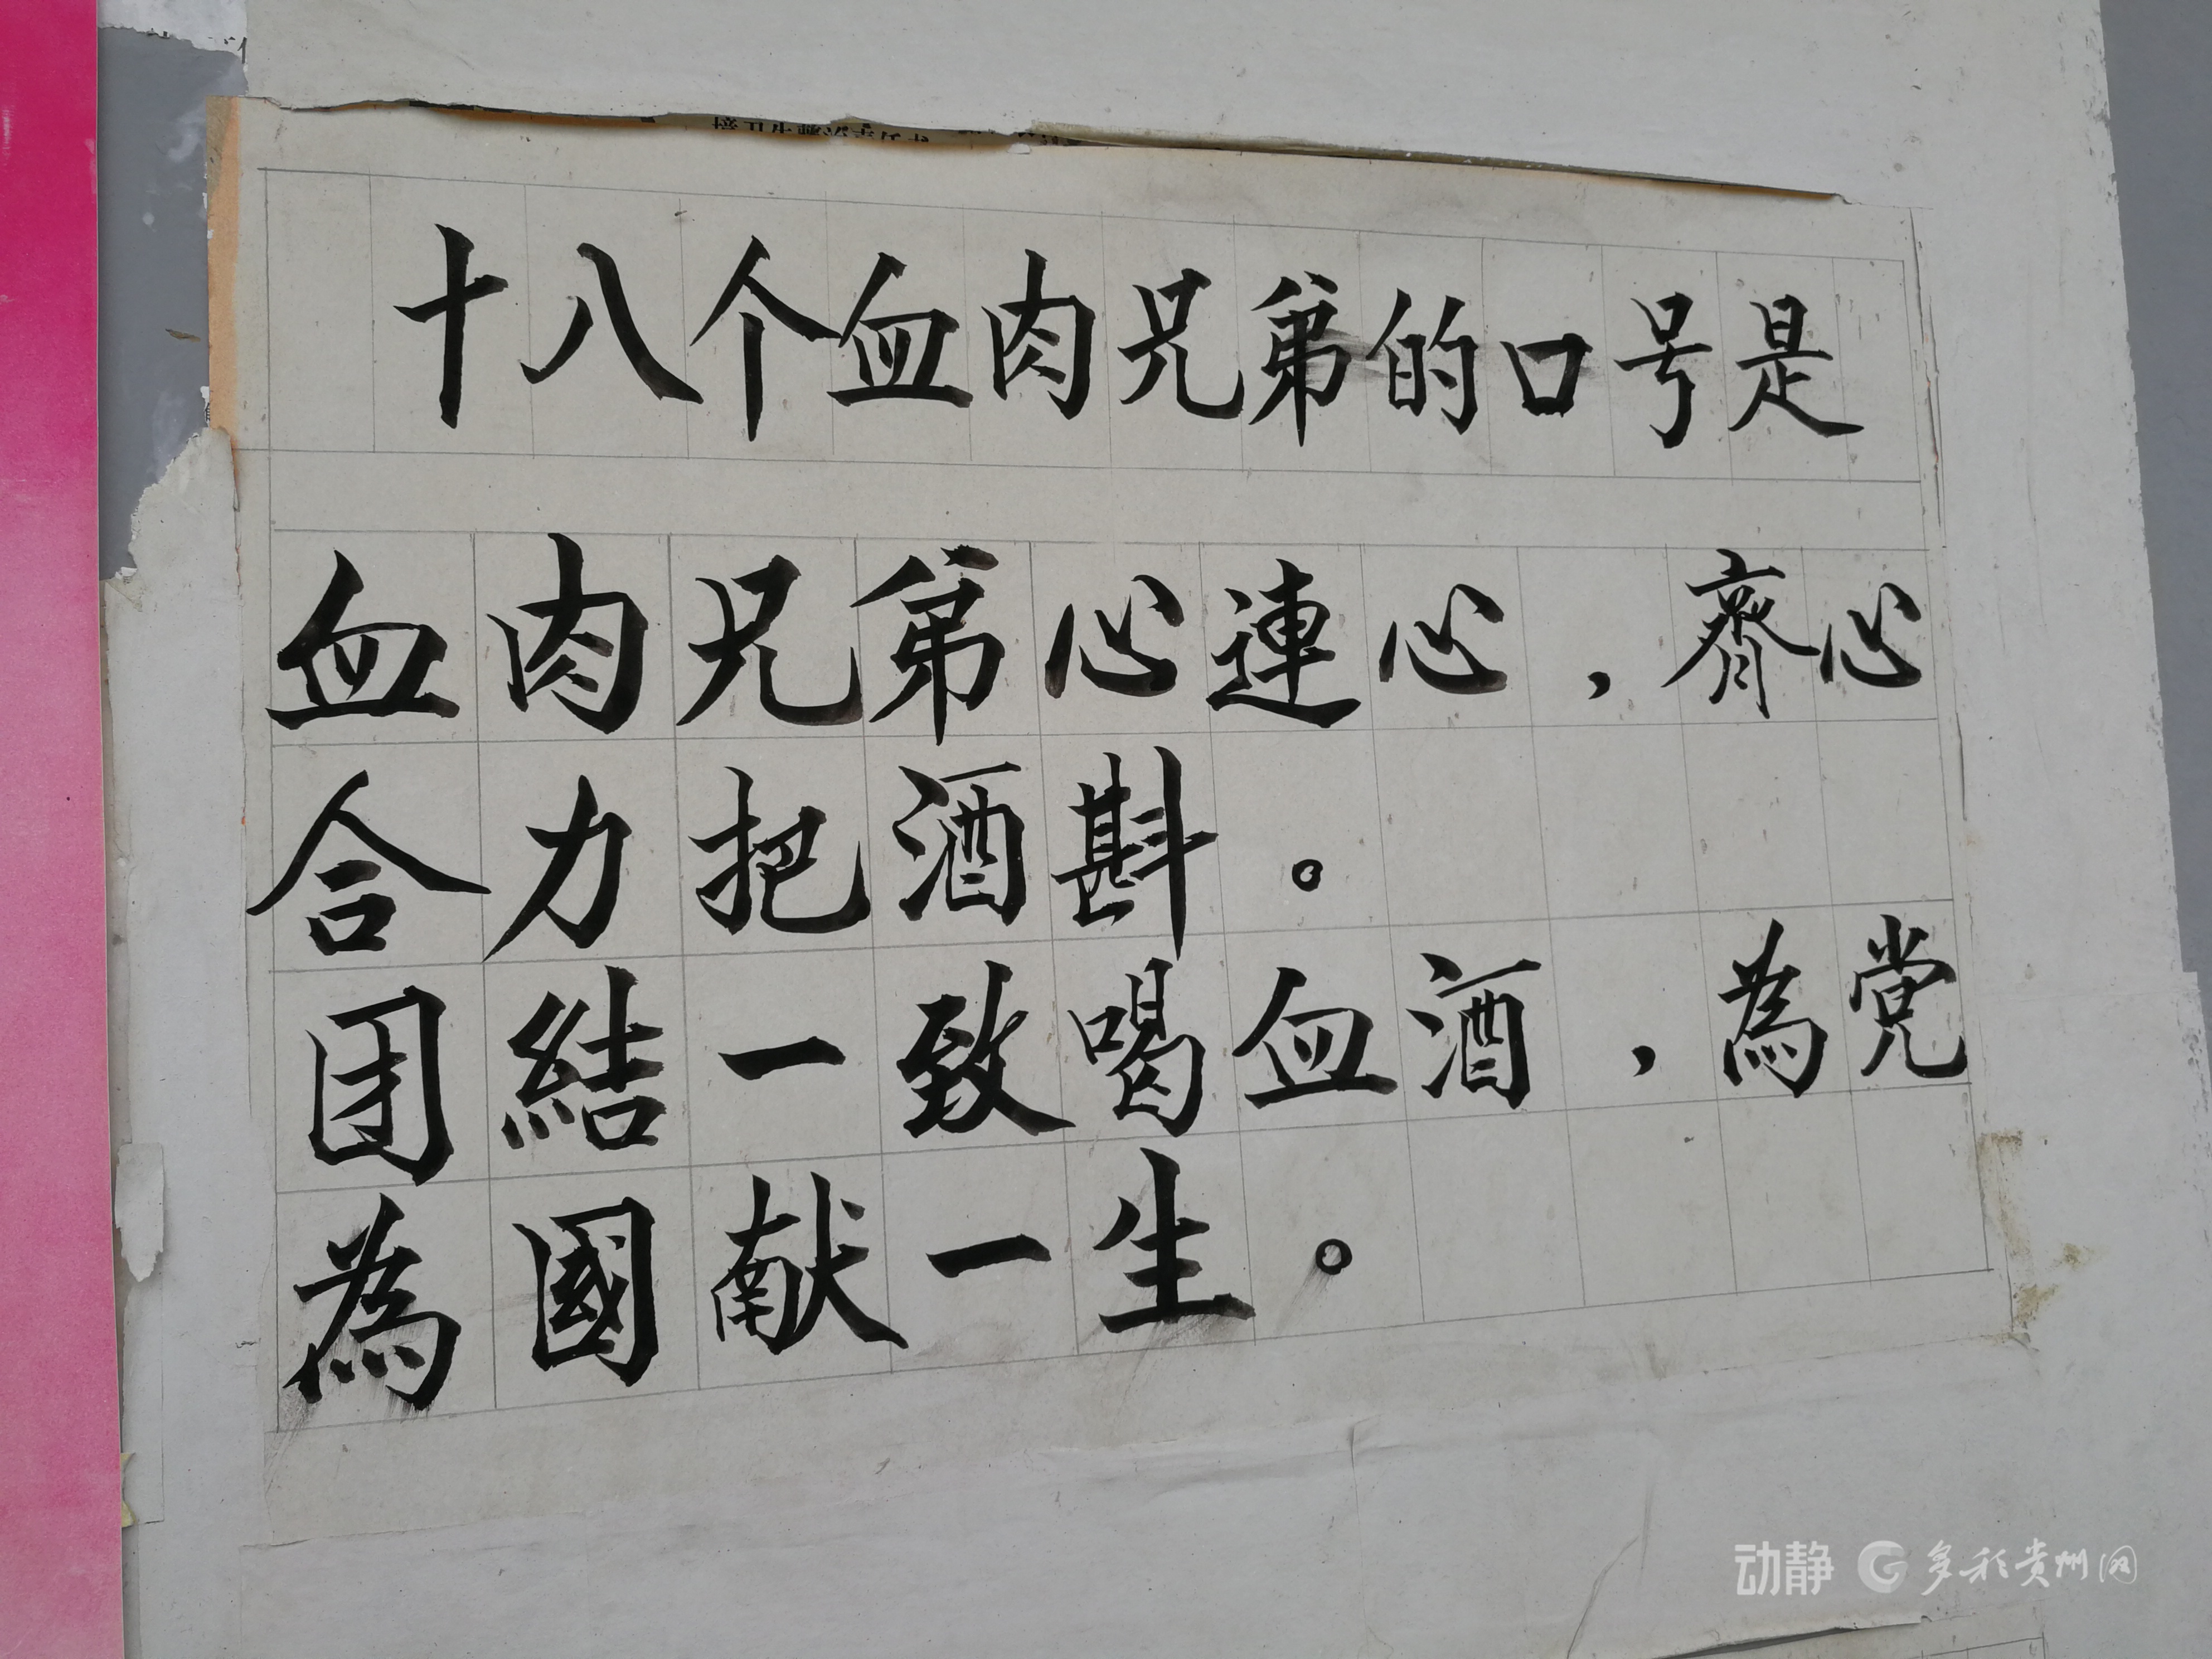 十八个血肉兄弟的口号是
血肉兄弟心連心，齊心
合力把酒斟。
团結一致喝血酒，為党
為國献一生。
动静 多彩贵州网